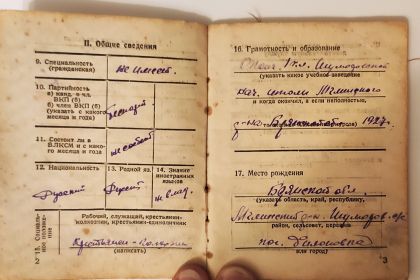 II. Общие сведения
9. Специальность
(гражданская)
не имеет.
10. Партийность
(в канд. и чл.
ВКП (б)
указать с какого
месяца и года)
11. Состоит ли в
ВЛКСМ и с како-
го месяца и года
не состоит
12. Национальность
Русский
13. Родной яз.
Русский
14. Знание
иностранных
языков
не влад.
15. Социаль-
ное
положение
Рабочий, служащий, крестьянин-
колхозник, крестьянин-единоличник
(написать)
2
16. Грамотность и образование
(указать какое учебное заведение
нач. школы Мглинского
и когда окончил, а если неполностью,
р-на Брянской 1927г.
17. Место рождения
Брянской обл.
(указать область, край, республику,
Мглинский р-н
район, сельсовет, деревню,
пос.
или город)
3